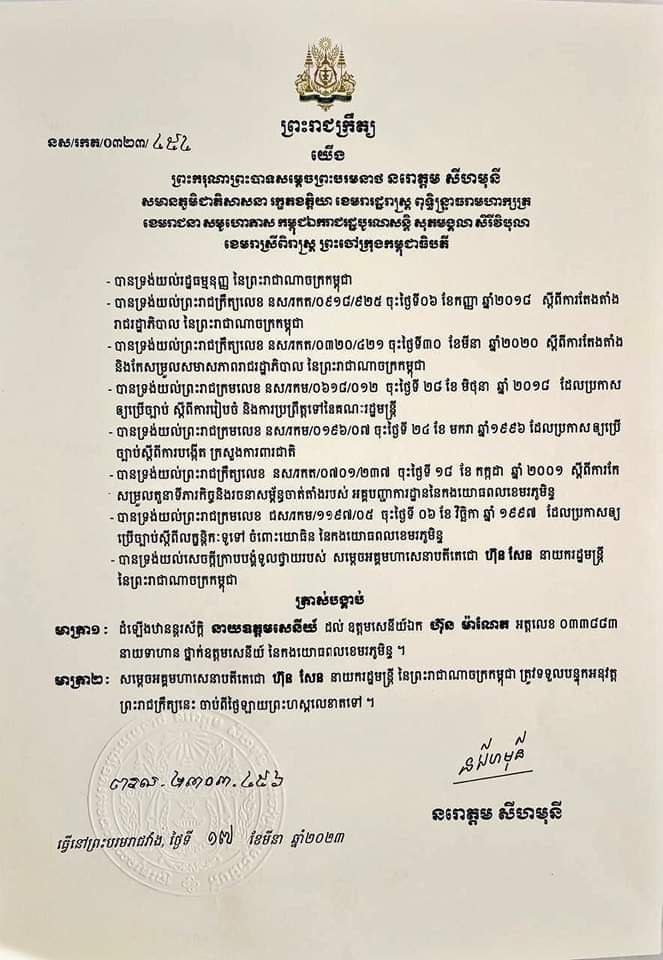 ព្រះរាជក្រឹត្យ
នស/រកត/០៣២៣/៤៥៤
យើង
ព្រះករុណាព្រះបាទសម្តេចព្រះបរមនាថ នរោត្តម សីហមុនី
សមានភូមិជាតិសាសនា រក្ខតខត្តិយា ខេមរារដ្ឋរាស្ត្រ ពុទ្ធិន្ទ្រាធរាមហាក្សត្រ
ខេមរាជនា សមូហោភាស កម្ពុជឯករាជរដ្ឋបូរណសន្តិ សុភមង្គលា សិរីវិបុលា
ខេមរាស្រីពិរាស្ត្រ ព្រះចៅក្រុងកម្ពុជាធិបតី
- បានទ្រង់យល់រដ្ឋធម្មនុញ្ញ នៃព្រះរាជាណាចក្រកម្ពុជា
- បានទ្រង់យល់ព្រះរាជក្រឹត្យលេខ នស/រកត/០៩១៨/៩២៥ ចុះថ្ងៃទី០៦ ខែកញ្ញា ឆ្នាំ២០១៨ ស្តីពីការតែងតាំង
រាជរដ្ឋាភិបាល នៃព្រះរាជាណាចក្រកម្ពុជា
- បានទ្រង់យល់ព្រះរាជក្រឹត្យលេខ នស/រកត/០៣២០/៤២១ ចុះថ្ងៃទី៣០ ខែមីនា ឆ្នាំ២០២០ ស្តីពីការតែងតាំង
និងកែសម្រួលសមាសភាពរាជរដ្ឋាភិបាល នៃព្រះរាជាណាចក្រកម្ពុជា
- បានទ្រង់យល់ព្រះរាជក្រមលេខ នស/រកម/០៦១៨/០១២ ចុះថ្ងៃទី ២៨ ខែ មិថុនា ឆ្នាំ ២០១៨ ដែលប្រកាស
ឲ្យប្រើច្បាប់ ស្តីពីការរៀបចំ និងការប្រព្រឹត្តទៅនៃគណៈរដ្ឋមន្ត្រី
- បានទ្រង់យល់ព្រះរាជក្រមលេខ នស/រកម/០១៩៦/០៧ ចុះថ្ងៃទី ២៤ ខែ មករា ឆ្នាំ១៩៩៦ ដែលប្រកាស ឲ្យប្រើ
ច្បាប់ស្តីពីការបង្កើត ក្រសួងការពារជាតិ
- បានទ្រង់យល់ព្រះរាជក្រឹត្យលេខ នស/រកត/០៧០១/២៣៧ ចុះថ្ងៃទី ១៨ ខែ កក្កដា ឆ្នាំ ២០០១ ស្តីពីការកែ
សម្រួលតួនាទីភារកិច្ចនិងរចនាសម្ព័ន្ធចាត់តាំងរបស់ អគ្គបញ្ជាការដ្ឋាននៃកងយោធពលខេមរភូមិន្ទ
- បានទ្រង់យល់ព្រះរាជក្រមលេខ ជស/រកម/១១៩៧/០៥ ចុះថ្ងៃទី ០៦ ខែ វិច្ឆិកា ឆ្នាំ ១៩៩៧ ដែលប្រកាសឲ្យ
ប្រើច្បាប់ស្តីពីលក្ខន្តិកៈទូទៅ ចំពោះយោធិន នៃកងយោធពលខេមរភូមិន្ទ
- បានទ្រង់យល់សេចក្តីក្រាបបង្គំទូលថ្វាយរបស់ សម្តេចអគ្គមហាសេនាបតីតេជោ ហ៊ុន សែន នាយករដ្ឋមន្ត្រី
នៃព្រះរាជាណាចក្រកម្ពុជា
ត្រាស់បង្គាប់
មាត្រា១: ដំឡើងឋានន្តរស័ក្តិ នាយឧត្តមសេនីយ៍ ដល់ ឧត្តមសេនីយ៍ឯក ហ៊ុន ម៉ាណែត អត្តលេខ ០៣៣៨៨៣
នាយទាហាន ថ្នាក់ឧត្តមសេនីយ៍ នៃកងយោធពលខេមរភូមិន្ទ ។
មាត្រា២: សម្តេចអគ្គមហាសេនាបតីតេជោ ហ៊ុន សែន នាយករដ្ឋមន្ត្រី នៃព្រះរាជាណាចក្រកម្ពុជា ត្រូវទទួលបន្ទុកអនុវត្ត
ព្រះរាជក្រឹត្យនេះ ចាប់ពីថ្ងៃឡាយព្រះហស្តលេខាតទៅ ។
ព.រ.ល. ២៣០៣.៤៥៦
នរោត្តម សីហមុនី
ធ្វើនៅព្រះបរមរាជវាំង, ថ្ងៃទី ១៧ ខែមីនា ឆ្នាំ២០២៣